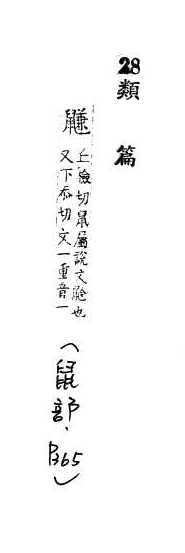 28類篇
鼸
丘檢切鼠屬說文䶃也
又下忝切文一重音一
（鼠部．P365）